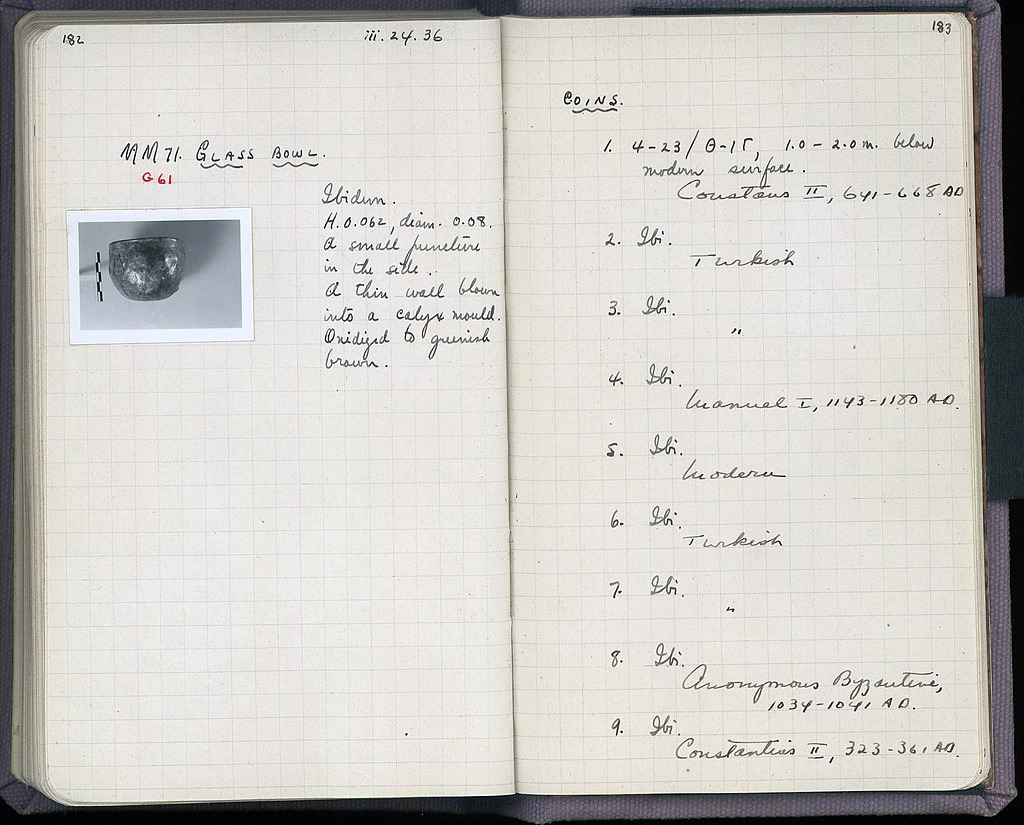 182
iii.24.36
MM 71. GLASS BOWL.
G 61
Ibidem.
H. 0.062, diam. 0.08.
A small puncture
in the side.
A thin wall blown
into a calyx mould.
Oxidized to greenish
brown.
183
COINS.
1. 4-23/Θ-ΙΓ, 1.0 - 2.0 m. below
modern surface.
Constans II, 641-668 AD
2. Ibi.
Turkish
3. Ibi.
"
4. Ibi.
Manuel I, 1143-1180 AD.
5. Ibi.
Modern
6. Ibi.
Turkish
7. Ibi.
"
8. Ibi.
Anonymous Byzantine,
1034-1041 AD.
9. Ibi.
Constantius II, 323-361 AD.